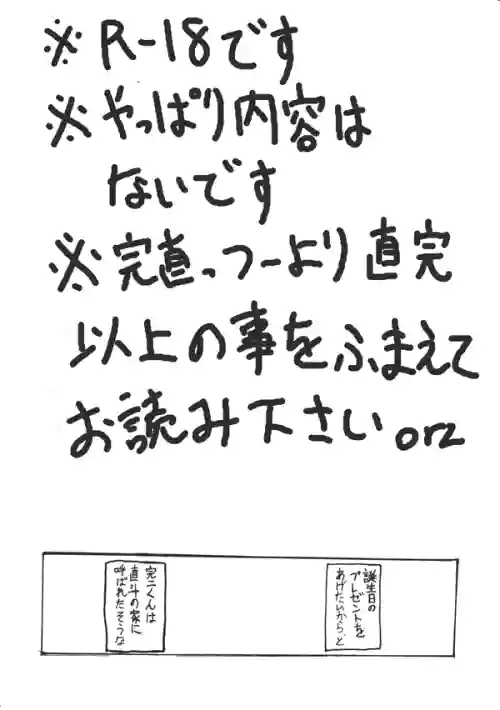 ※R-18です
※やっぱり内容は
ないです
※完直っつーより直完
以上の事をふまえて
お読み下さいorz
誕生日の
プレゼントを
あげたいから、と
完二くんは
直斗の家に
呼ばれたそうな